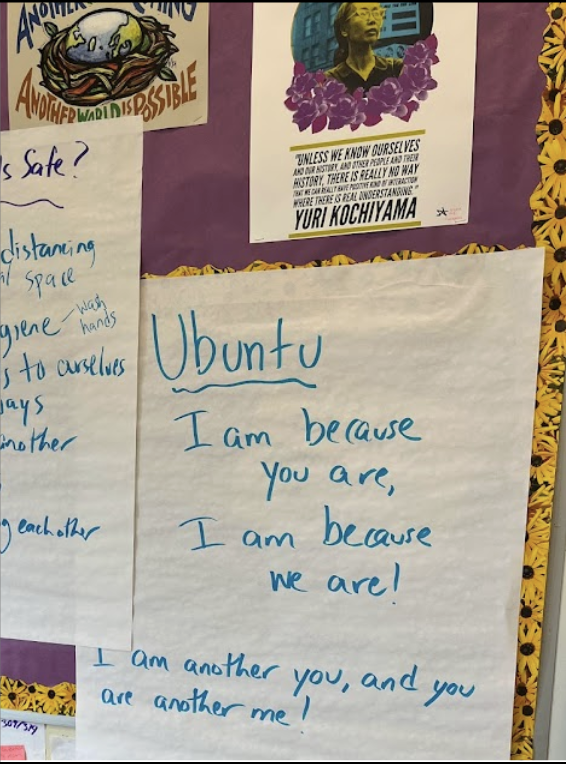 ANOTHER
ANOTHER WORLD IS POSSIBLE
"UNLESS WE KNOW OURSELVES
AND OUR HISTORY, AND OTHER PEOPLE AND THEIR
HISTORY, THERE IS REALLY NO WAY
THAT WE CAN REALLY HAVE POSITIVE KIND OF INTERACTION
WHERE THERE IS REAL UNDERSTANDING."
YURI KOCHIYAMA
Safe?
distancing
space
wash
hands
to ourselves
another
each other
Ubuntu
I am because
you are,
I am because
we are!
I am another you, and you
are another me!